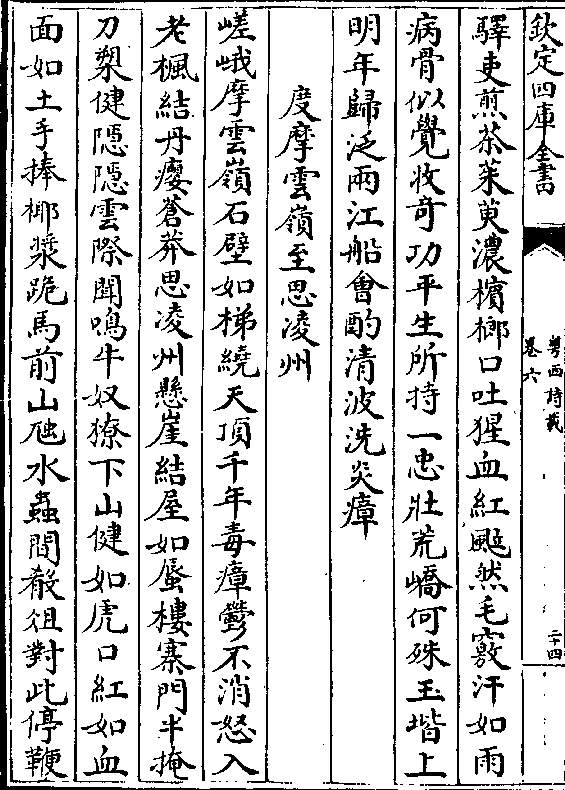 欽定四庫全書
粵西詩載
卷六
二十四
驛吏煎茶茱萸濃檳榔口吐猩血紅颼然毛竅汗如雨
病骨似覺收奇功平生所持一忠壯荒嶠何殊玉堦上
明年歸泛兩江船會酌清波洗炎瘴
度摩雲嶺至思凌州
嵯峨摩雲嶺石壁如梯繞天頂千年毒瘴鬱不消怒入
老楓結丹癭蒼莽思凌州懸崖結屋如蜃樓寨門半掩
刀槊健隱隱雲際聞鳴牛奴獠下山健如虎口紅如血
面如土手捧椰漿跪馬前山虺水蟲間殽俎對此停鞭